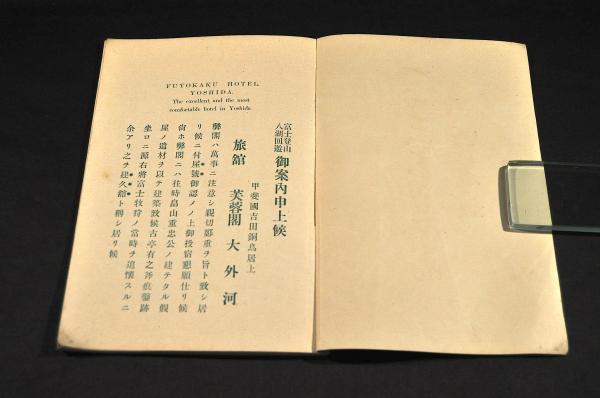 FUYOKAKU HOTEL,
YOSHIDA.
The excellent and the most
comfortable hotel in Yoshida.
富士登山
八湖回遊
御案內申上候
甲斐國吉田銅鳥居上
旅舘 芙蓉閣 大外河
弊閣ハ萬事ニ注意シ親切鄭重ヲ旨ト致シ居
リ候ニ付屋號御認メノ上御投宿懇願仕リ候
尙ホ弊閣ニハ往時畠山重忠公ノ建テタル假
屋ノ遺材ヲ以テ建築致候古亭有之斧痕鑿跡
坐ロニ源右將富士牧狩ノ當時ヲ追懷スルニ
余アリ之ヲ建久舘ト稱シ居リ候